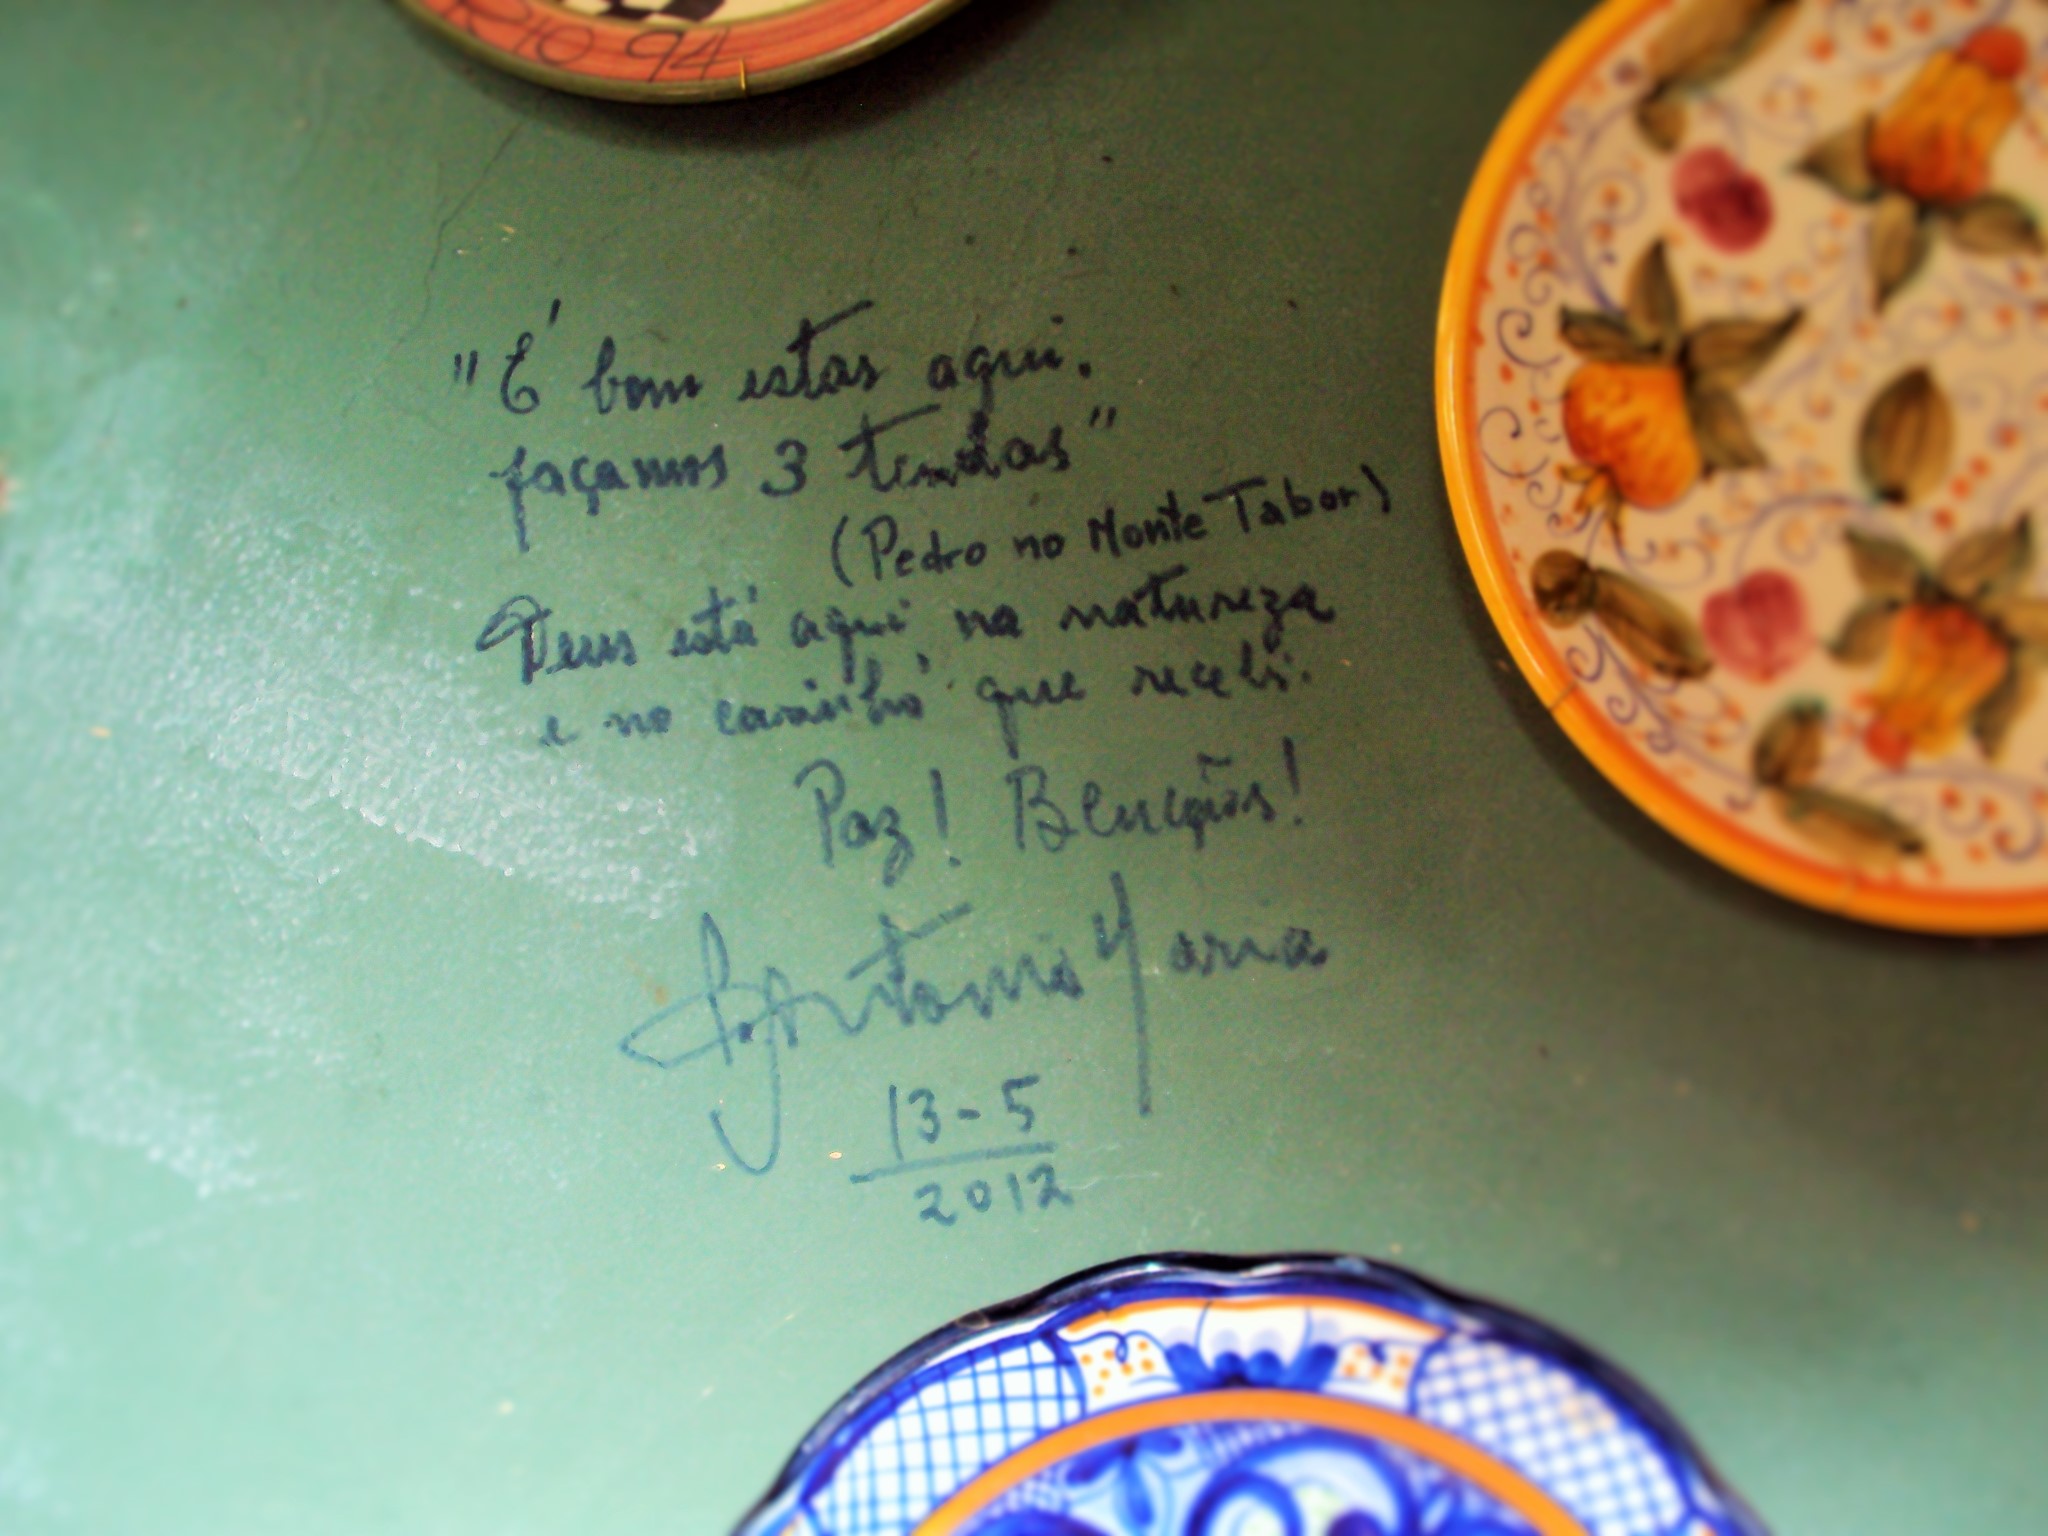 RIO 94
"É bom estar aqui.
façamos 3 tendas"
(Pedro no Monte Tabor)
Deus está aqui na natureza
e no carinho que recebi.
Paz! Bençãos!
Antonio Maria
13-5
2012